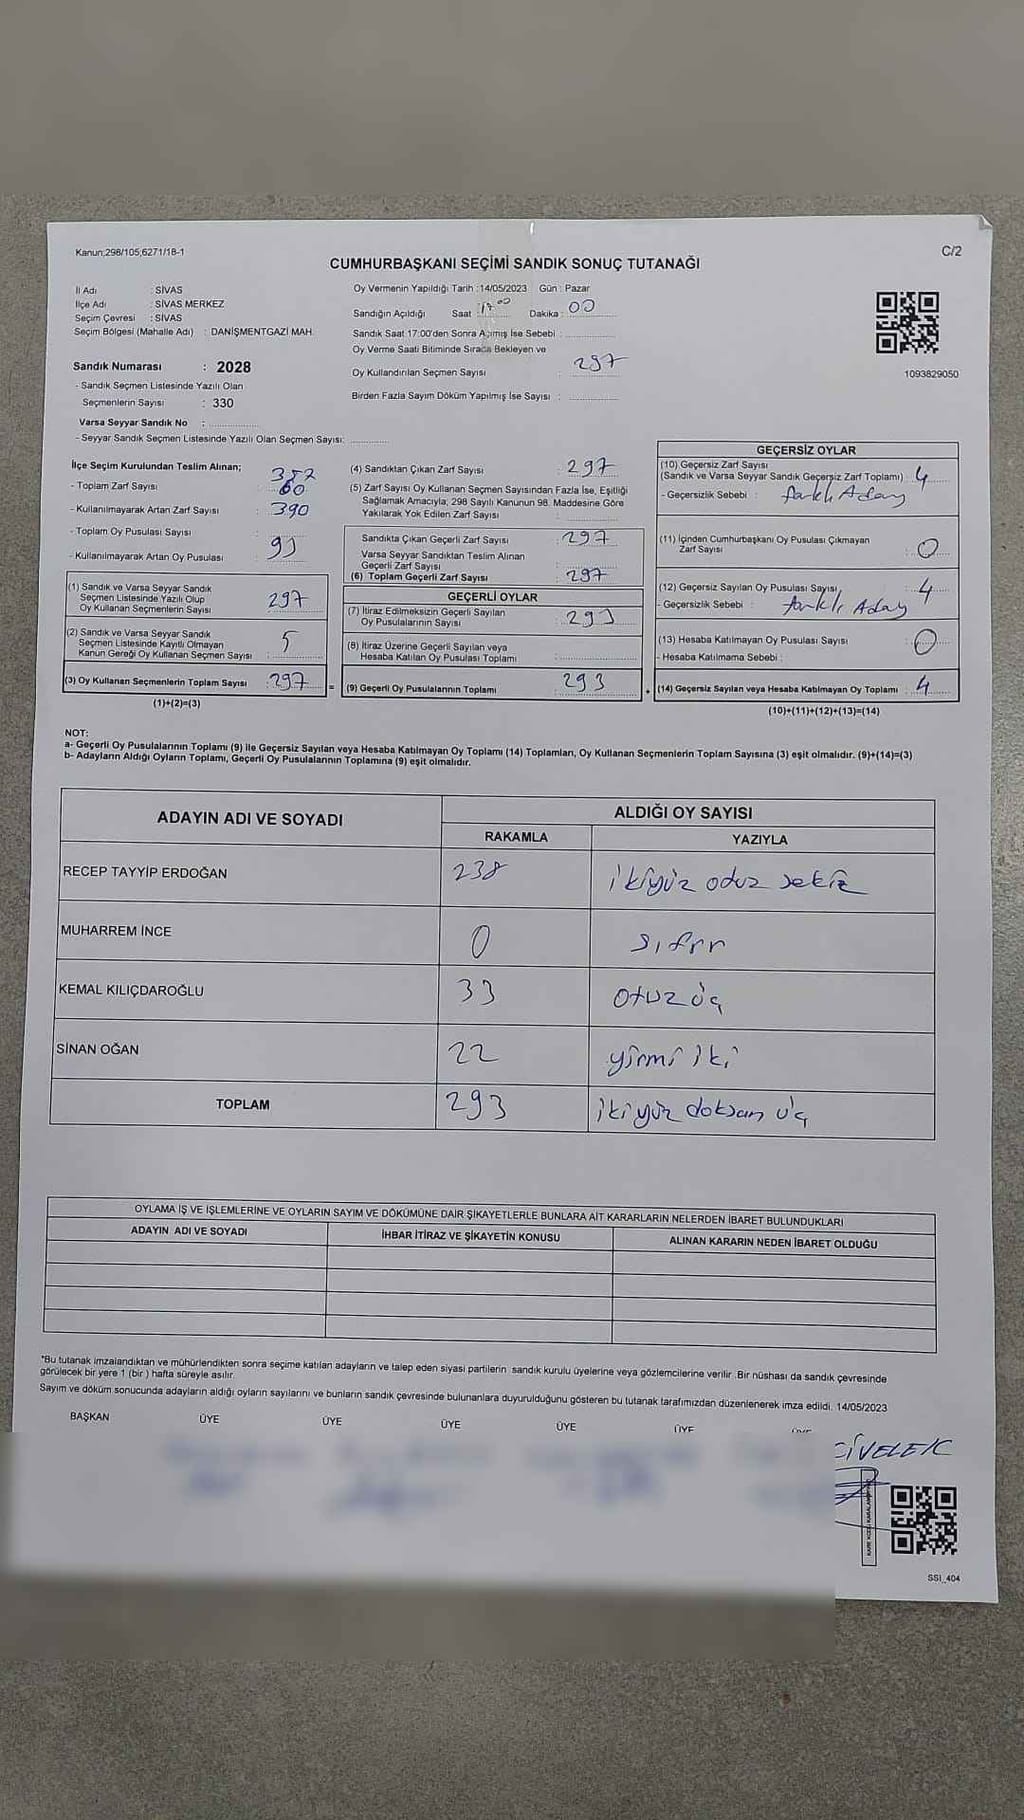 Kanun;298/105;6271/18-1
C/2
CUMHURBAŞKANI SEÇİMİ SANDIK SONUÇ TUTANAĞI
İl Adı : SİVAS
İlçe Adı : SİVAS MERKEZ
Seçim Çevresi : SİVAS
Seçim Bölgesi (Mahalle Adı) : DANİŞMENTGAZİ MAH.
Sandık Numarası : 2028
- Sandık Seçmen Listesinde Yazılı Olan
Seçmenlerin Sayısı : 330
Varsa Seyyar Sandık No :
- Seyyar Sandık Seçmen Listesinde Yazılı Olan Seçmen Sayısı:
Oy Vermenin Yapıldığı Tarih :14/05/2023 Gün : Pazar
Sandığın Açıldığı Saat : 17 00 Dakika : 00
Sandık Saat 17:00'den Sonra Açılmış İse Sebebi :
Oy Verme Saati Bitiminde Sırada Bekleyen ve
Oy Kullandırılan Seçmen Sayısı : 297
Birden Fazla Sayım Döküm Yapılmış İse Sayısı :
1093829050
İlçe Seçim Kurulundan Teslim Alınan;
- Toplam Zarf Sayısı :
- Kullanılmayarak Artan Zarf Sayısı : 60
- Toplam Oy Pusulası Sayısı : 390
- Kullanılmayarak Artan Oy Pusulası : 93
(1) Sandık ve Varsa Seyyar Sandık
Seçmen Listesinde Yazılı Olup
Oy Kullanan Seçmenlerin Sayısı : 297
(2) Sandık ve Varsa Seyyar Sandık
Seçmen Listesinde Kayıtlı Olmayan
Kanun Gereği Oy Kullanan Seçmen Sayısı : 5
(3) Oy Kullanan Seçmenlerin Toplam Sayısı : 297
(1)+(2)=(3)
(4) Sandıktan Çıkan Zarf Sayısı : 297
(5) Zarf Sayısı Oy Kullanan Seçmen Sayısından Fazla İse, Eşitliği
Sağlamak Amacıyla; 298 Sayılı Kanunun 98. Maddesine Göre
Yakılarak Yok Edilen Zarf Sayısı :
Sandıkta Çıkan Geçerli Zarf Sayısı : 297
Varsa Seyyar Sandıktan Teslim Alınan
Geçerli Zarf Sayısı :
(6) Toplam Geçerli Zarf Sayısı : 297
GEÇERLİ OYLAR
(7) İtiraz Edilmeksizin Geçerli Sayılan
Oy Pusulalarının Sayısı : 293
(8) İtiraz Üzerine Geçerli Sayılan veya
Hesaba Katılan Oy Pusulası Toplamı :
= (9) Geçerli Oy Pusulalarının Toplamı : 293
GEÇERSİZ OYLAR
(10) Geçersiz Zarf Sayısı
(Sandık ve Varsa Seyyar Sandık Geçersiz Zarf Toplamı) : 4
- Geçersizlik Sebebi : farklı Aday
(11) İçinden Cumhurbaşkanı Oy Pusulası Çıkmayan
Zarf Sayısı : 0
(12) Geçersiz Sayılan Oy Pusulası Sayısı : 4
- Geçersizlik Sebebi : farklı Aday
(13) Hesaba Katılmayan Oy Pusulası Sayısı : 0
- Hesaba Katılmama Sebebi :
+ (14) Geçersiz Sayılan veya Hesaba Katılmayan Oy Toplamı : 4
(10)+(11)+(12)+(13)=(14)
NOT:
a- Geçerli Oy Pusulalarının Toplamı (9) ile Geçersiz Sayılan veya Hesaba Katılmayan Oy Toplamı (14) Toplamları, Oy Kullanan Seçmenlerin Toplam Sayısına (3) eşit olmalıdır. (9)+(14)=(3)
b- Adayların Aldığı Oyların Toplamı, Geçerli Oy Pusulalarının Toplamına (9) eşit olmalıdır.
ADAYIN ADI VE SOYADI
ALDIĞI OY SAYISI
RAKAMLA YAZIYLA
RECEP TAYYİP ERDOĞAN 238 ikiyüz oduz sekiz
MUHARREM İNCE 0 sıfır
KEMAL KILIÇDAROĞLU 33 otuz üç
SİNAN OĞAN 22 yirmi iki
TOPLAM 293 ikiyüz doksan üç
OYLAMA İŞ VE İŞLEMLERİNE VE OYLARIN SAYIM VE DÖKÜMÜNE DAİR ŞİKAYETLERLE BUNLARA AİT KARARLARIN NELERDEN İBARET BULUNDUKLARI
ADAYIN ADI VE SOYADI İHBAR İTİRAZ VE ŞİKAYETİN KONUSU ALINAN KARARIN NEDEN İBARET OLDUĞU
*Bu tutanak imzalandıktan ve mühürlendikten sonra seçime katılan adayların ve talep eden siyasi partilerin sandık kurulu üyelerine veya gözlemcilerine verilir .Bir nüshası da sandık çevresinde
görülecek bir yere 1 (bir ) hafta süreyle asılır.
Sayım ve döküm sonucunda adayların aldığı oyların sayılarını ve bunların sandık çevresinde bulunanlara duyurulduğunu gösteren bu tutanak tarafımızdan düzenlenerek imza edildi. 14/05/2023
BAŞKAN ÜYE ÜYE ÜYE ÜYE ÜYE
CİVELEK
SSI_404